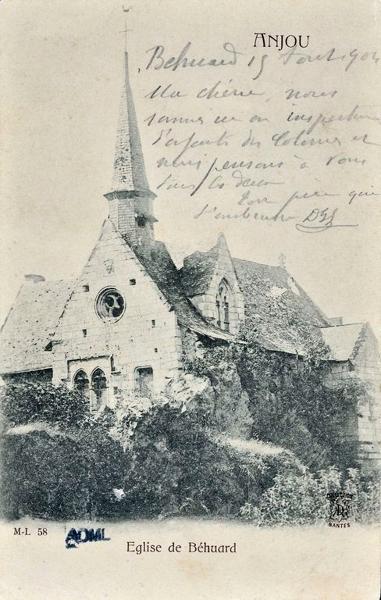 ANJOU
Béhuard 15 Août 190
Ma chérie, nous
sommes en inspection
d'enfants des Colonies et
nous pensons à vous
tous les deux
Ton père qui
t'embrasse
M-L 58
ADML
Eglise de Béhuard
NANTES